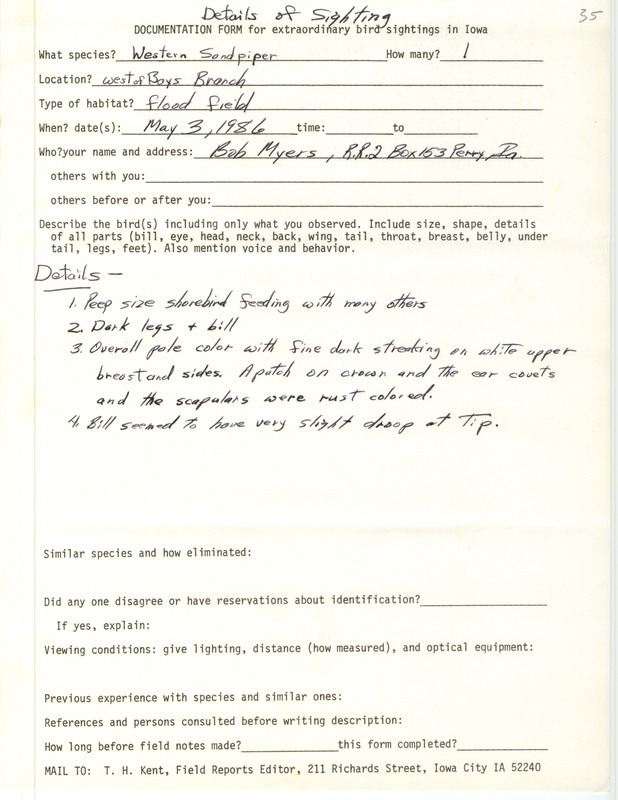 Details of Sighting
35
DOCUMENTATION FORM for extraordinary bird sightings in Iowa
What species? Western Sandpiper How many? 1
Location? west of Boys Branch
Type of habitat? flood field
When? date(s): May 3, 1986 time: to
Who?your name and address: Bob Myers, R.R.2 Box 153 Perry, Ia.
others with you:
others before or after you:
Describe the bird(s) including only what you observed. Include size, shape, details
of all parts (bill, eye, head, neck, back, wing, tail, throat, breast, belly, under
tail, legs, feet). Also mention voice and behavior.
Details —
1. Peep size shorebird feeding with many others
2. Dark legs + bill
3. Overall pale color with fine dark streaking on white upper
breast and sides. A patch on crown and the ear covets
and the scapulars were rust colored.
4. Bill seemed to have very slight droop at Tip.
Similar species and how eliminated:
Did any one disagree or have reservations about identification?
If yes, explain:
Viewing conditions: give lighting, distance (how measured), and optical equipment:
Previous experience with species and similar ones:
References and persons consulted before writing description:
How long before field notes made? this form completed?
MAIL TO: T. H. Kent, Field Reports Editor, 211 Richards Street, Iowa City IA 52240